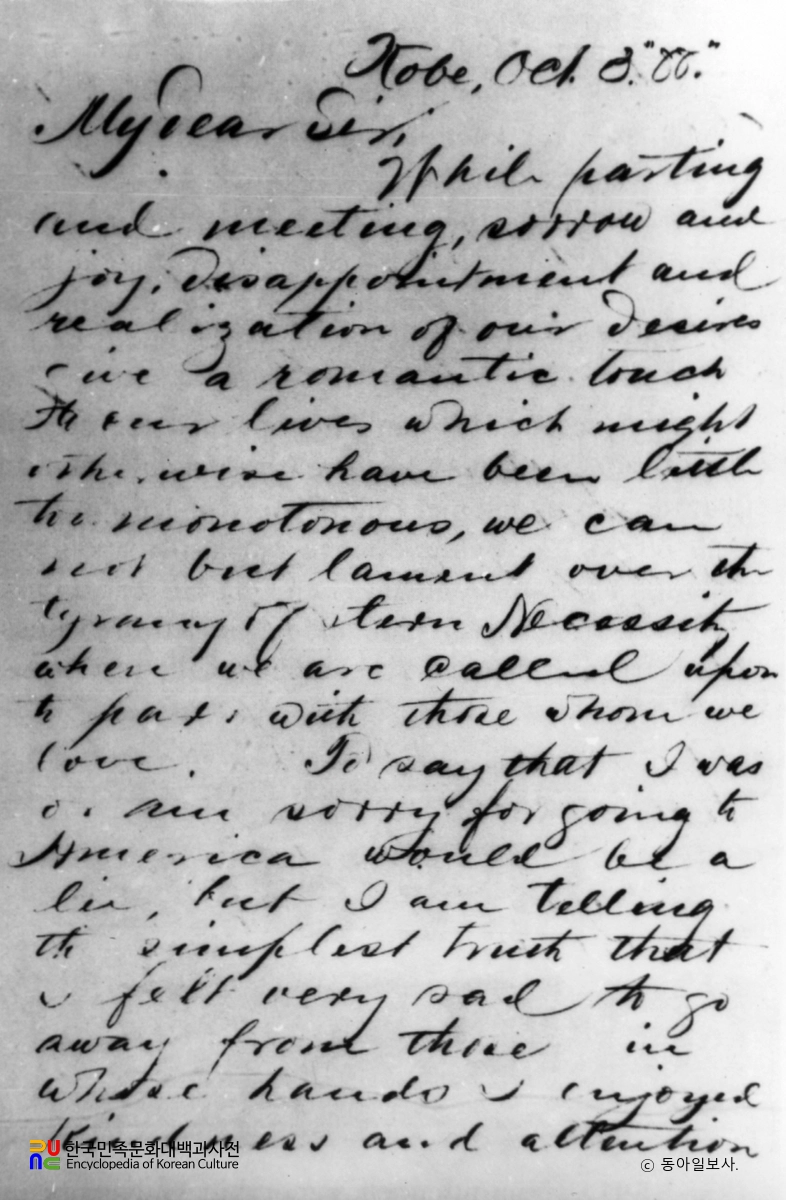 Kobe, Oct. 3." 88."
My dear Sir,
While parting
and meeting, sorrow and
joy, disappointment and
realization of our desires
give a romantic touch
to our lives which might
otherwise have been little
too monotonous, we can
not but lament over the
tyranny of stern Necessity
when we are called upon
to part with those whom we
love. To say that I was
or am sorry for going to
America would be a
lie, but I am telling
the simplest truth that
I felt very sad to go
away from those in
whose hands I enjoyed
kindness and attention
한국민족문화대백과사전
Encyclopedia of Korean Culture
© 동아일보사.